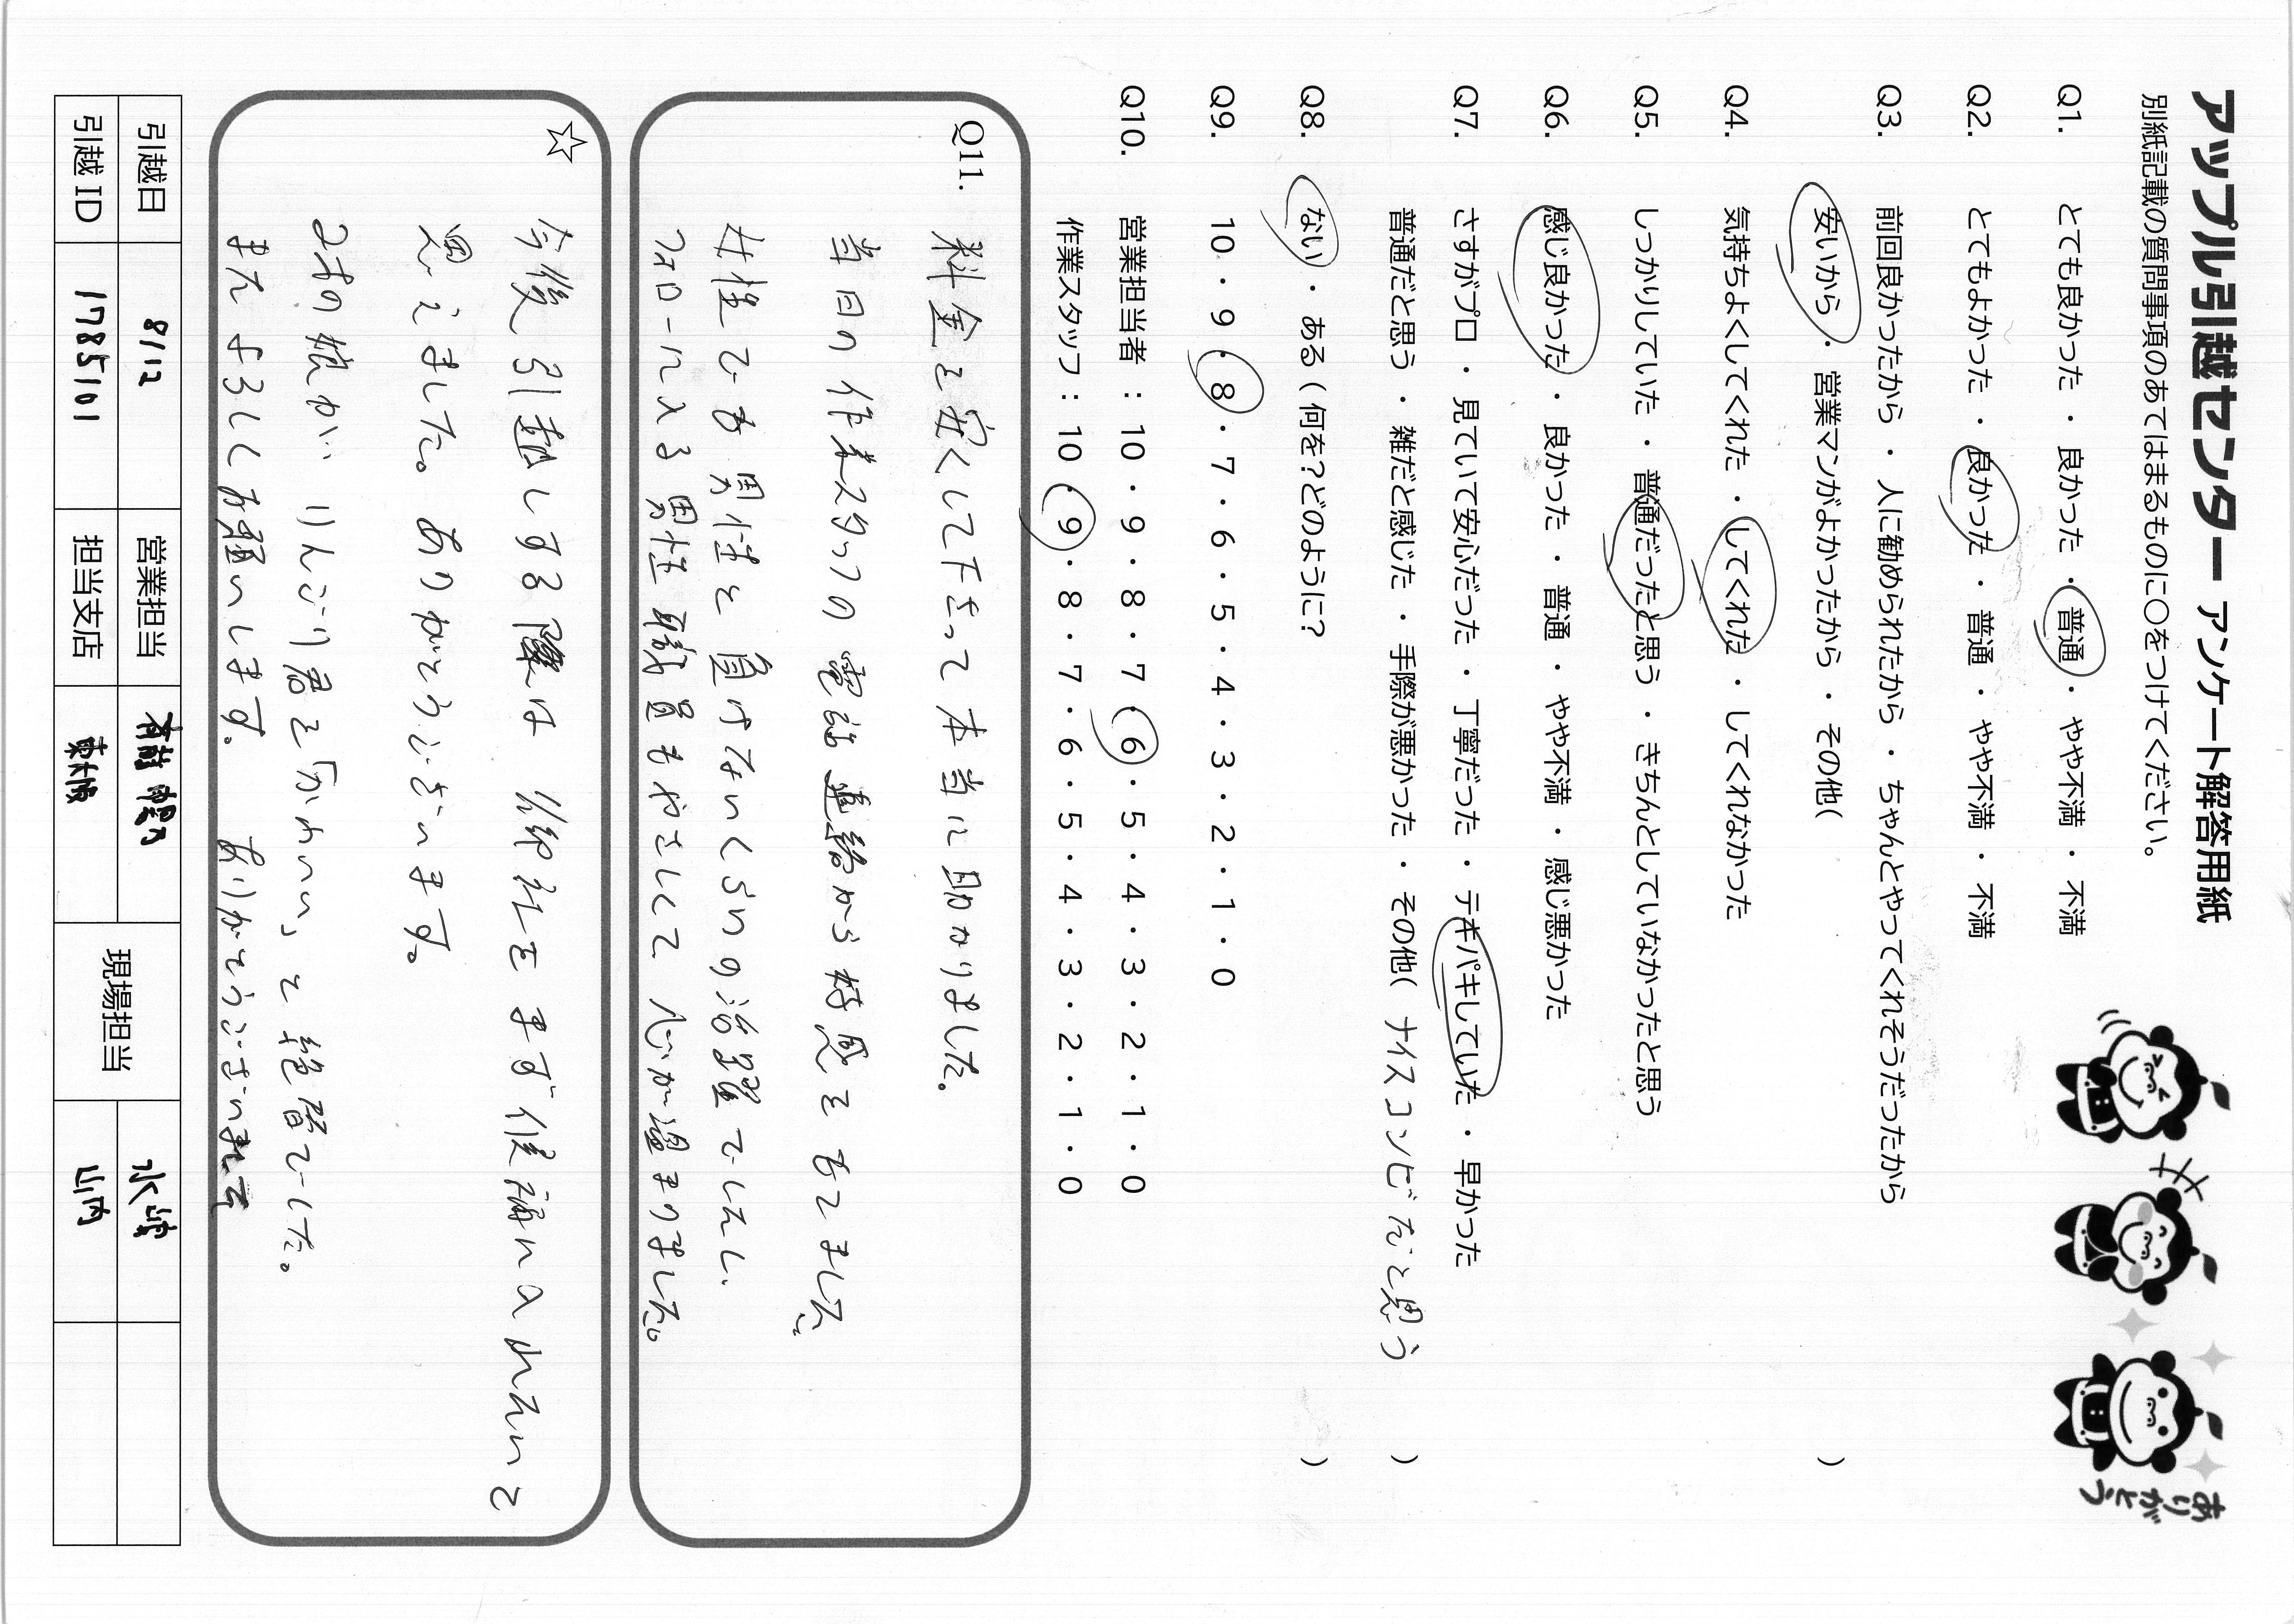 アップル引越センター アンケート解答用紙
別紙記載の質問事項のあてはまるものに○をつけてください。
ありがとう
Q1. とても良かった ・ 良かった ・ 普通 ・ やや不満 ・ 不満
Q2. とてもよかった ・ 良かった ・ 普通 ・ やや不満 ・ 不満
Q3. 前回良かったから ・ 人に勧められたから ・ ちゃんとやってくれそうだったから
安いから ・ 営業マンがよかったから ・ その他( )
Q4. 気持ちよくしてくれた ・ してくれた ・ してくれなかった
Q5. しっかりしていた ・ 普通だったと思う ・ きちんとしていなかったと思う
Q6. 感じ良かった ・ 良かった ・ 普通 ・ やや不満 ・ 感じ悪かった
Q7. さすがプロ ・ 見ていて安心だった ・ 丁寧だった ・ テキパキしていた ・ 早かった
普通だと思う ・ 雑だと感じた ・ 手際が悪かった ・ その他( ナイスコンビだと思う )
Q8. ない ・ ある ( 何を?どのように? )
Q9. 10 ・ 9 ・ 8 ・ 7 ・ 6 ・ 5 ・ 4 ・ 3 ・ 2 ・ 1 ・ 0
Q10. 営業担当者 : 10 ・ 9 ・ 8 ・ 7 ・ 6 ・ 5 ・ 4 ・ 3 ・ 2 ・ 1 ・ 0
作業スタッフ : 10 ・ 9 ・ 8 ・ 7 ・ 6 ・ 5 ・ 4 ・ 3 ・ 2 ・ 1 ・ 0
Q11. 料金を安くして下さって本当に助かりました。
当日の作業スタッフの電話連絡から好感をもてました。
女性でも男性と負けないくらいの活躍でしたし
フォローに入る男性職員もやさしくて心が温まりました。
☆ 今後引越しする際は 御社をまず候補に入れたいと
思えました。ありがとうございます。
2才の娘が りんごり君を「かわいい」と絶賛でした。
またよろしくお願いします。 ありがとうございました
引越日 8/12 営業担当 現場担当 水嶋
引越ID 1785101 担当支店 東大阪 山内